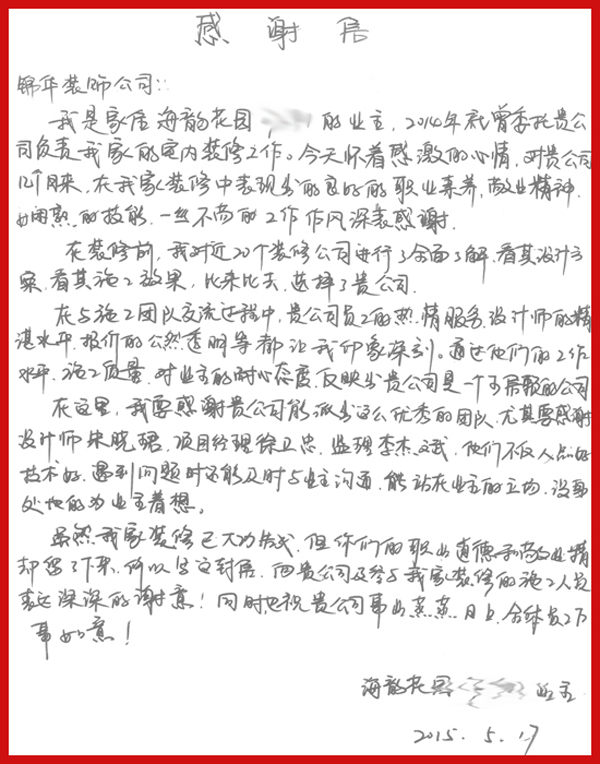 感谢信
锦华装饰公司:
我是家居海韵花园 的业主，2014年就曾委托贵公
司负责我家的室内装修工作。今天怀着感激的心情，对贵公司
几个月来，在我家装修中表现出的良好的职业素养，敬业精神，
娴熟的技能，一丝不苟的工作作风深表感谢.
在装修前，我对近20个装修公司进行了全面了解，看其设计方
案，看其施工效果，比来比去，选择了贵公司.
在与施工团队交流过程中，贵公司员工的热情服务，设计师的精
湛水平，报价的公然透明等都让我印象深刻。通过他们的工作
水平，施工质量，对业主的耐心态度，反映出贵公司是一个可信赖的公司
在这里，我要感谢贵公司能派出这么优秀的团队，尤其要感谢
设计师朱晓珺，项目经理徐卫忠，监理李杰斌，他们不仅人品好
技术好，遇到问题时还能及时与业主沟通，能站在业主的立场，设身
处地的为业主着想。
虽然我家装修已大功告成，但你们的职业道德和敬业精
却留了下来，所以写这封信，向贵公司及参与我家装修的施工人员
表达深深的谢意！同时也祝贵公司事业蒸蒸日上，全体员工万
事如意！
海韵花园 业主
2015.5.17